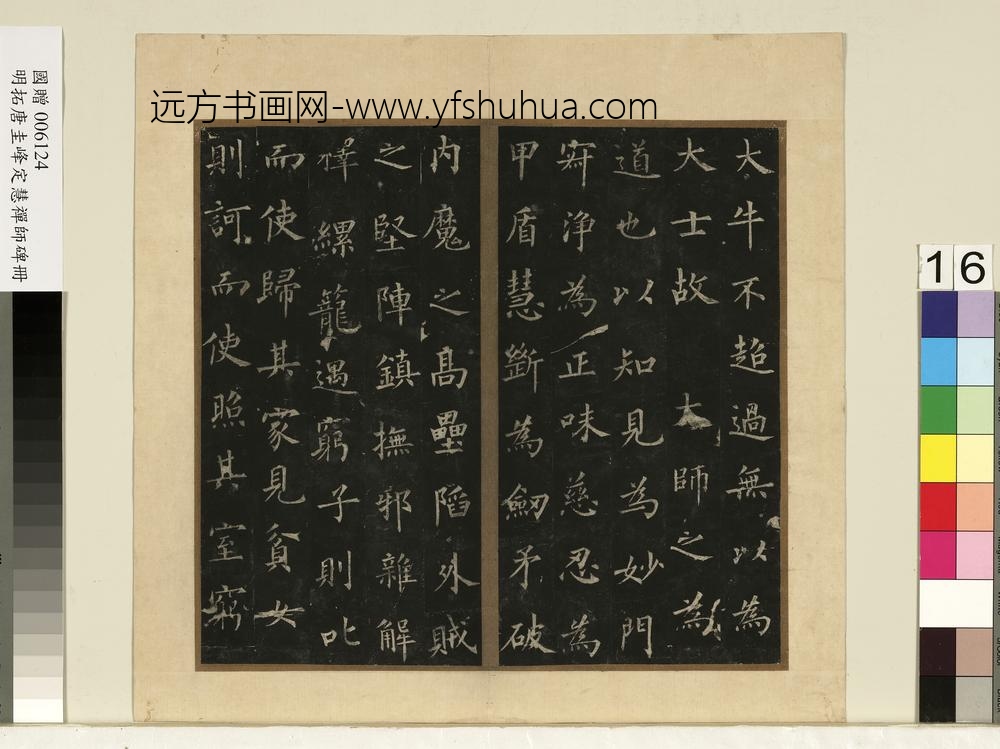 远方书画网-www.yfshuhua.com
國贈 006124
明拓唐圭峰定慧禪師碑冊
16
大牛不超過無以為
大士故大師之為
道也以知見為妙門
寂淨為正味慈忍為
甲盾慧斷為劒矛破
内魔之高壘陷外賊
之堅陣鎮撫邪雜解
縲籠遇窮子則叱
而使歸其家見貧女
則訶而使照其室窮